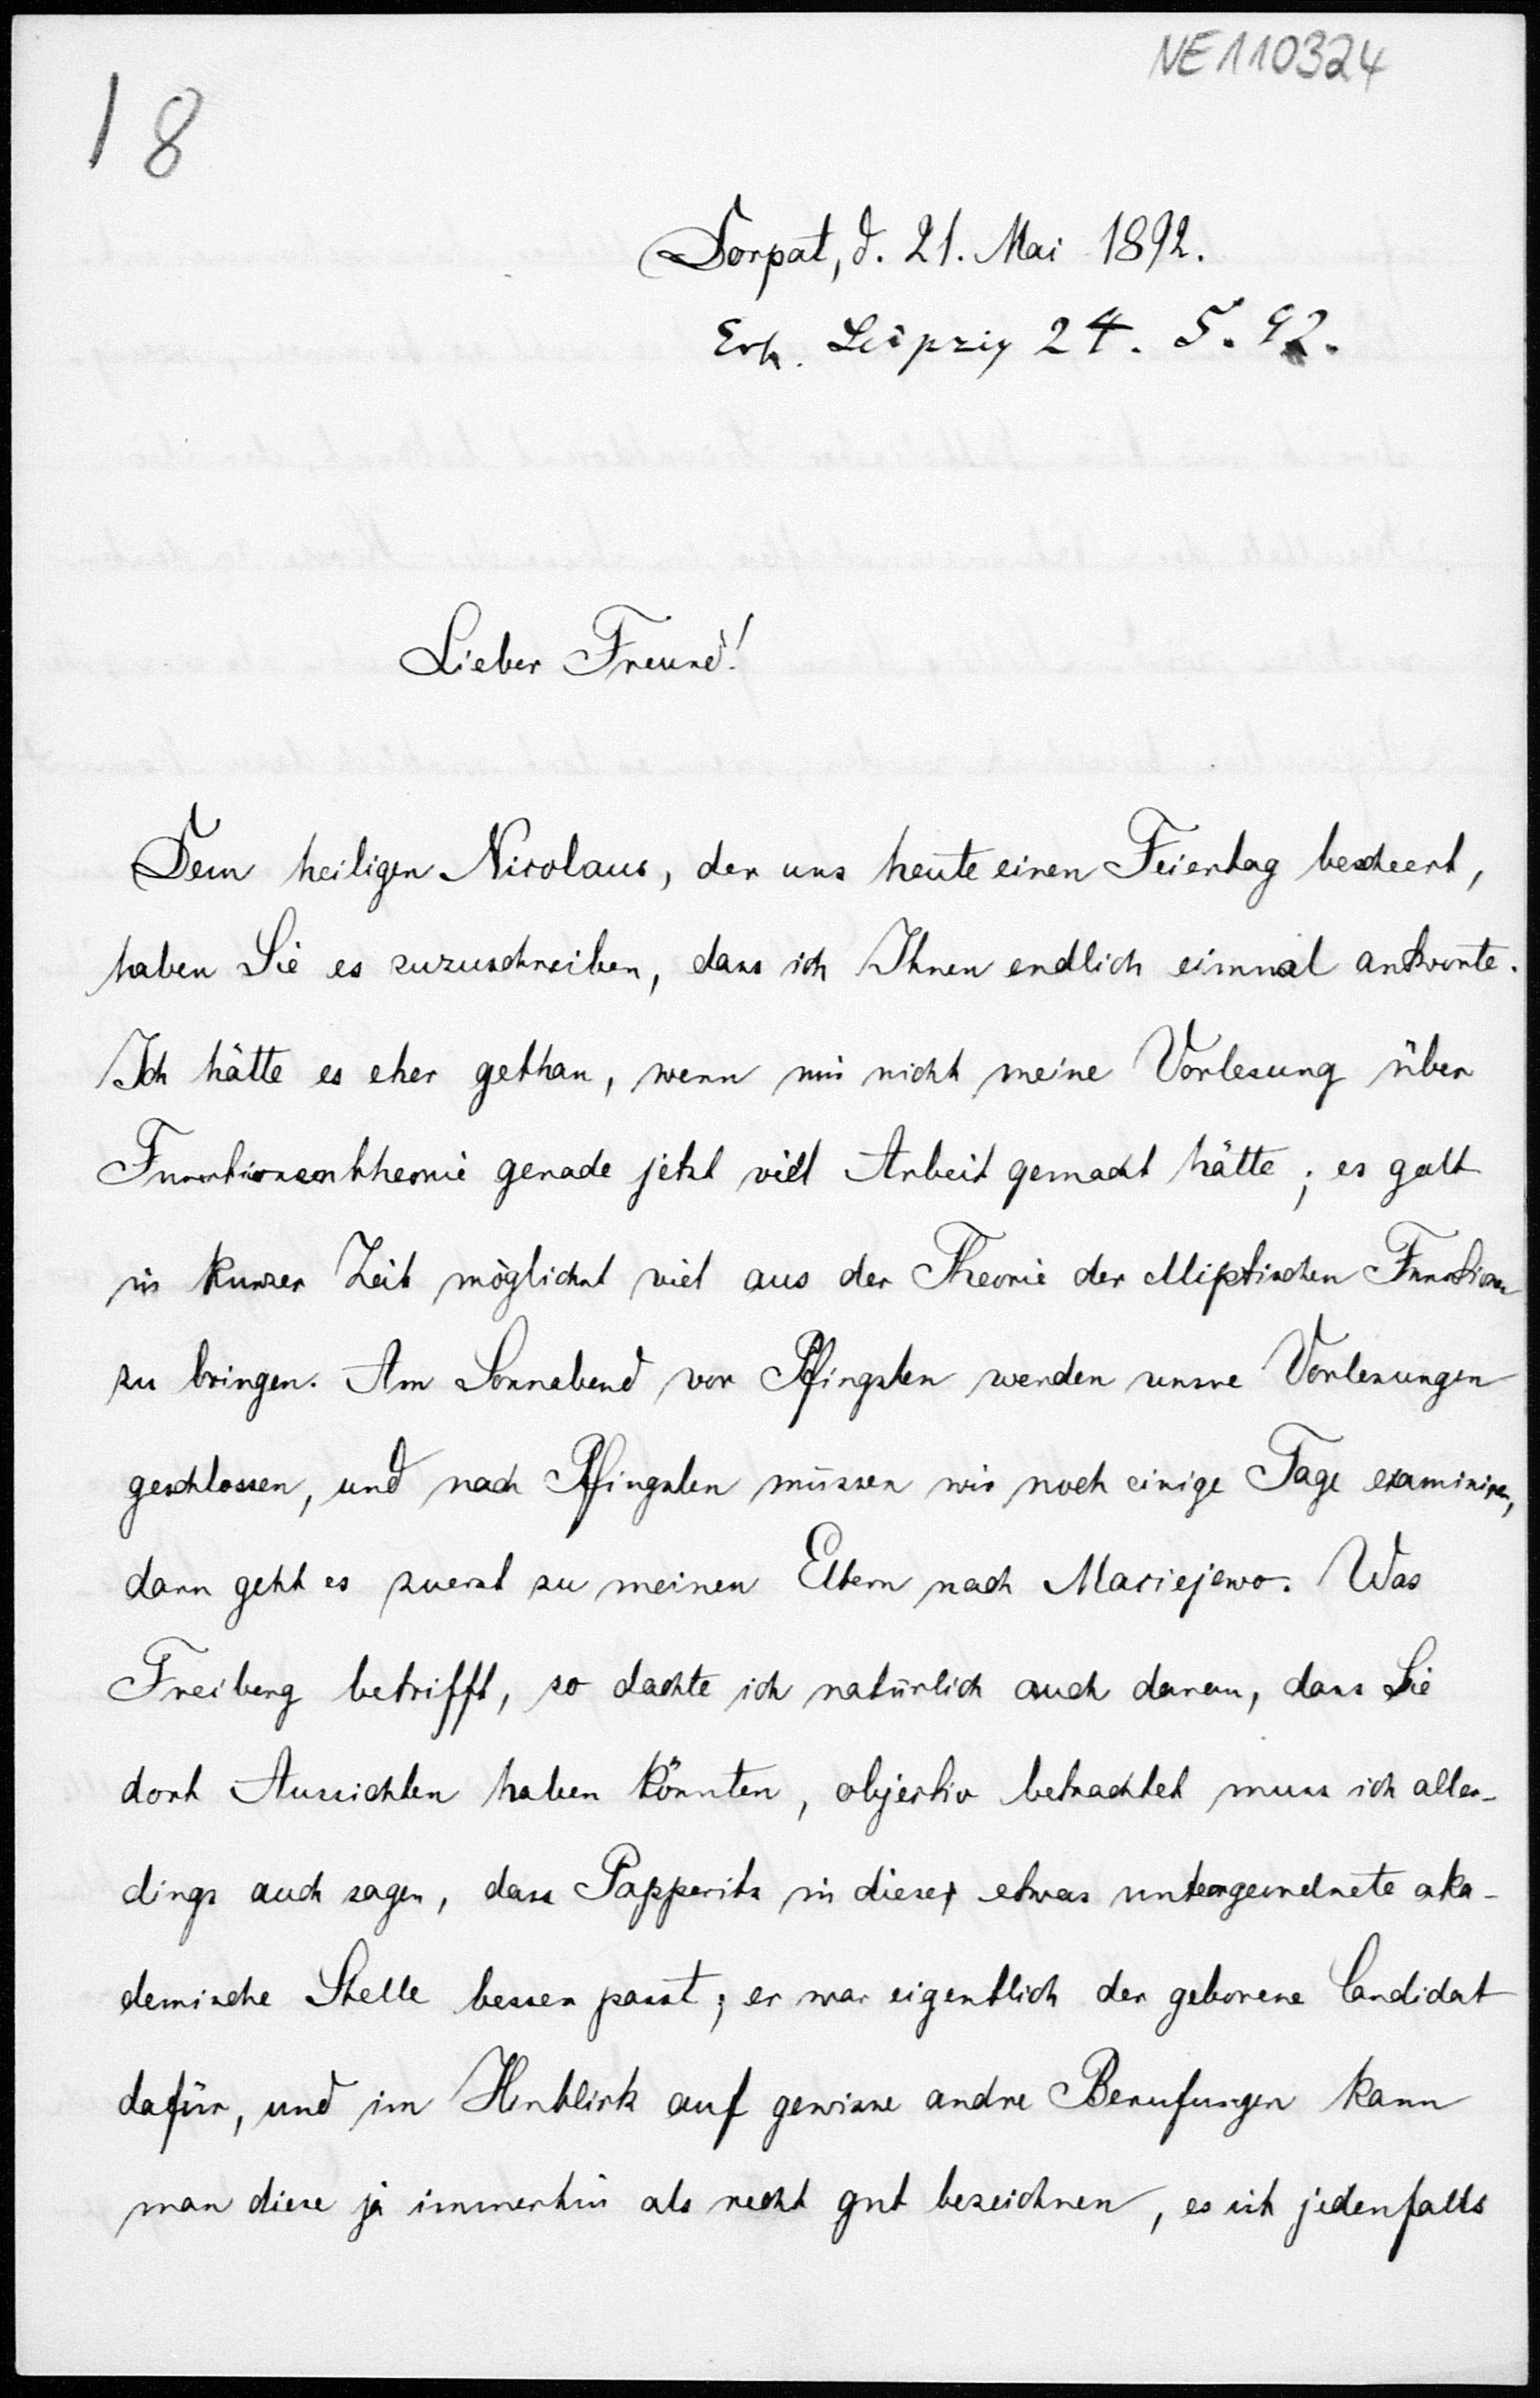 NE110324
18
Dorpat, d. 21. Mai 1892.
Erh. Leipzig 24. 5. 92.
Lieber Freund!
Dem heiligen Nicolaus, der uns heute einen Feiertag bescheert,
haben Sie es zuzuschreiben, dass ich Ihnen endlich einmal antworte.
Ich hätte es eher gethan, wenn mir nicht meine Vorlesung über
Functionentheorie gerade jetzt viel Arbeit gemacht hätte; es galt
in kurzer Zeit möglichst viel aus der Theorie der elliptischen Function
zu bringen. Am Sonnabend vor Pfingsten werden unsre Vorlesungen
geschlossen, und nach Pfingsten müssen wir noch einige Tage examiniren,
dann geht es zuerst zu meinen Eltern nach Maciejewo. Was
Freiberg betrifft, so dachte ich natürlich auch daran, dass Sie
dort Aussichten haben könnten, objectiv betrachtet muss ich aller-
dings auch sagen, dass Papperitz in diese etwas untergeordnete aka-
demische Stelle besser passt; er war eigentlich der geborene Candidat
dafür, und im Hinblick auf gewisse andre Berufungen kann
man diese ja immerhin als recht gut bezeichnen, es ist jedenfalls